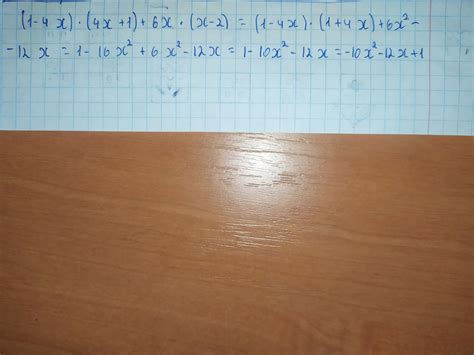 (1-4x)·(4x+1)+6x·(x-2) = (1-4x)·(1+4x)+6x²-
-12x = 1-16x²+6x²-12x = 1-10x²-12x = -10x²-12x+1